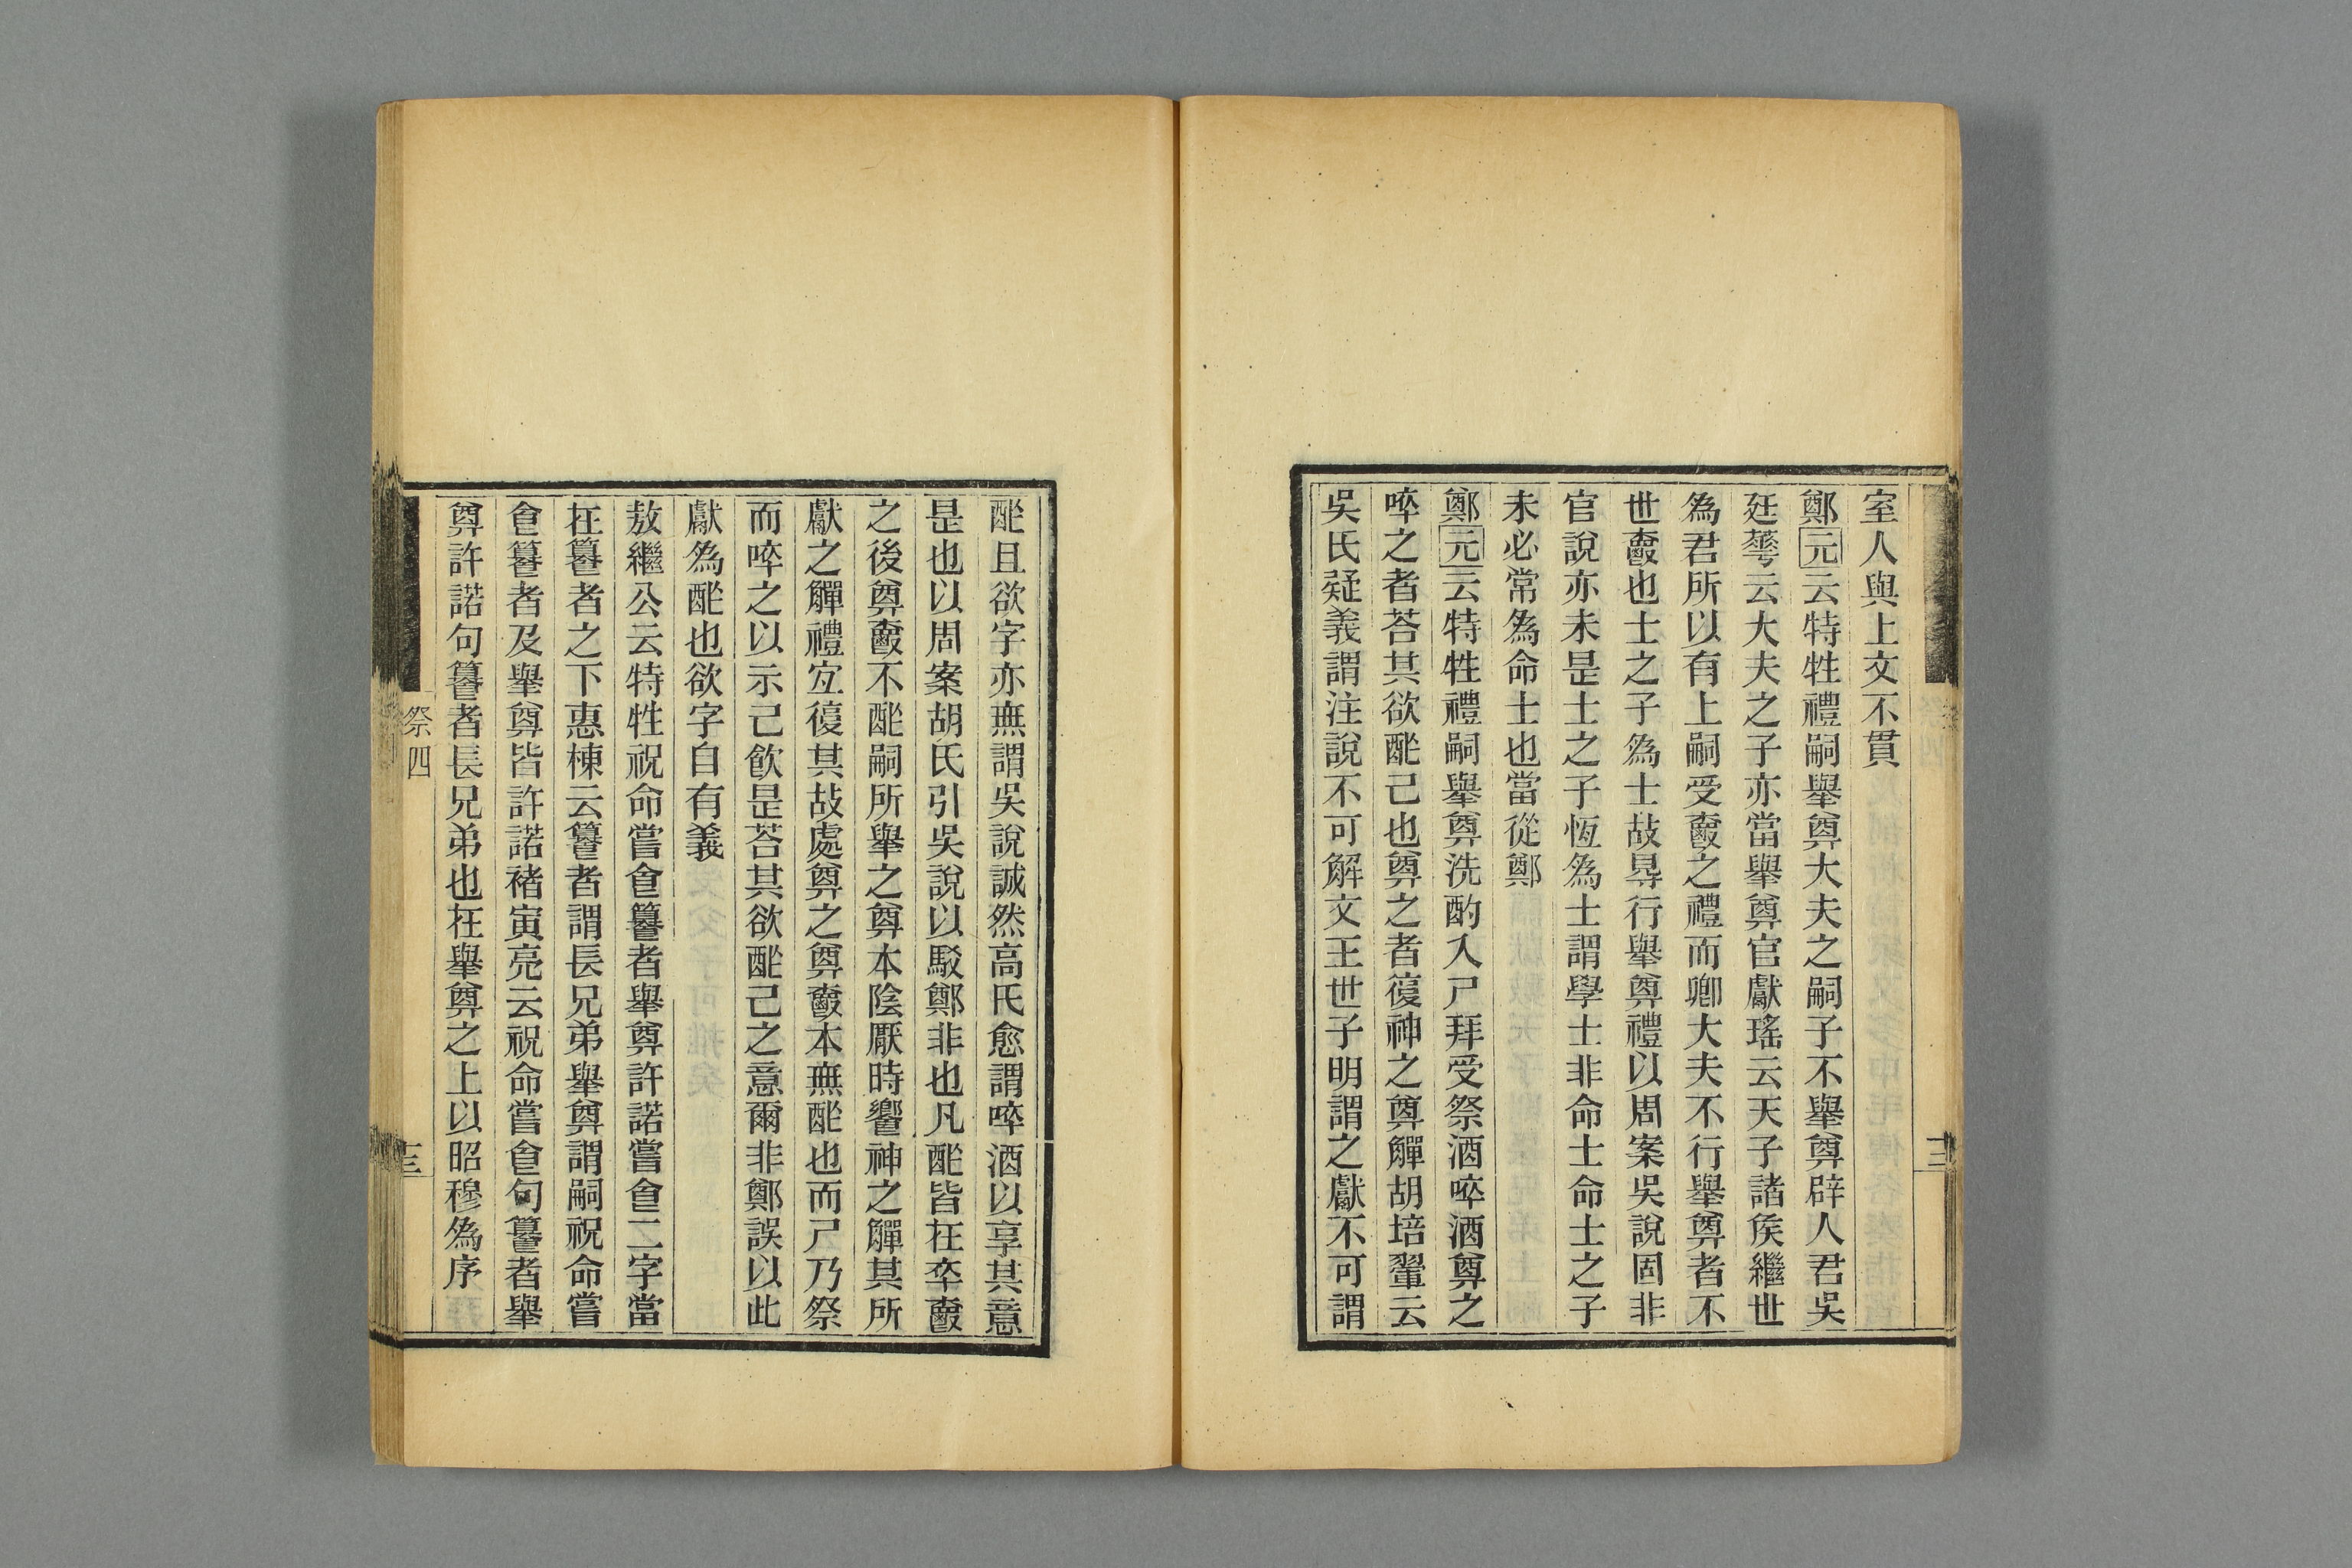 室人與上文不貫
鄭元云特牲禮嗣舉奠大夫之嗣子不舉奠辟人君吳
廷華云大夫之子亦當舉奠官獻瑤云天子諸侯繼世
為君所以有上嗣受爵之禮而卿大夫不行舉奠者不
世爵也士之子為士故㝵行舉奠禮以周案吳說固非
官說亦未是士之子恆為士謂學士非命士命士之子
未必常為命士也當從鄭
鄭元云特牲禮嗣舉奠洗酌入尸拜受祭酒啐酒奠之
啐之者荅其欲酢己也奠之者復神之奠觶胡培翬云
吳氏疑義謂注說不可解文王世子明謂之獻不可謂
酢且欲字亦無謂吳說誠然高氏愈謂啐酒以享其意
是也以周案胡氏引吳說以駁鄭非也凡酢皆在卒爵
之後奠爵不酢嗣所舉之奠本陰厭時饗神之觶其所
獻之觶禮宐復其故處奠之奠爵本無酢也而尸乃祭
而啐之以示己飲是荅其欲酢己之意爾非鄭誤以此
獻為酢也欲字自有義
敖繼公云特牲祝命嘗食籑者舉奠許諾嘗食二字當
在籑者之下惠棟云籑者謂長兄弟舉奠謂嗣祝命嘗
食籑者及舉奠皆許諾褚寅亮云祝命嘗食句籑者舉
奠許諾句籑者長兄弟也在舉奠之上以昭穆為序
祭四
十三